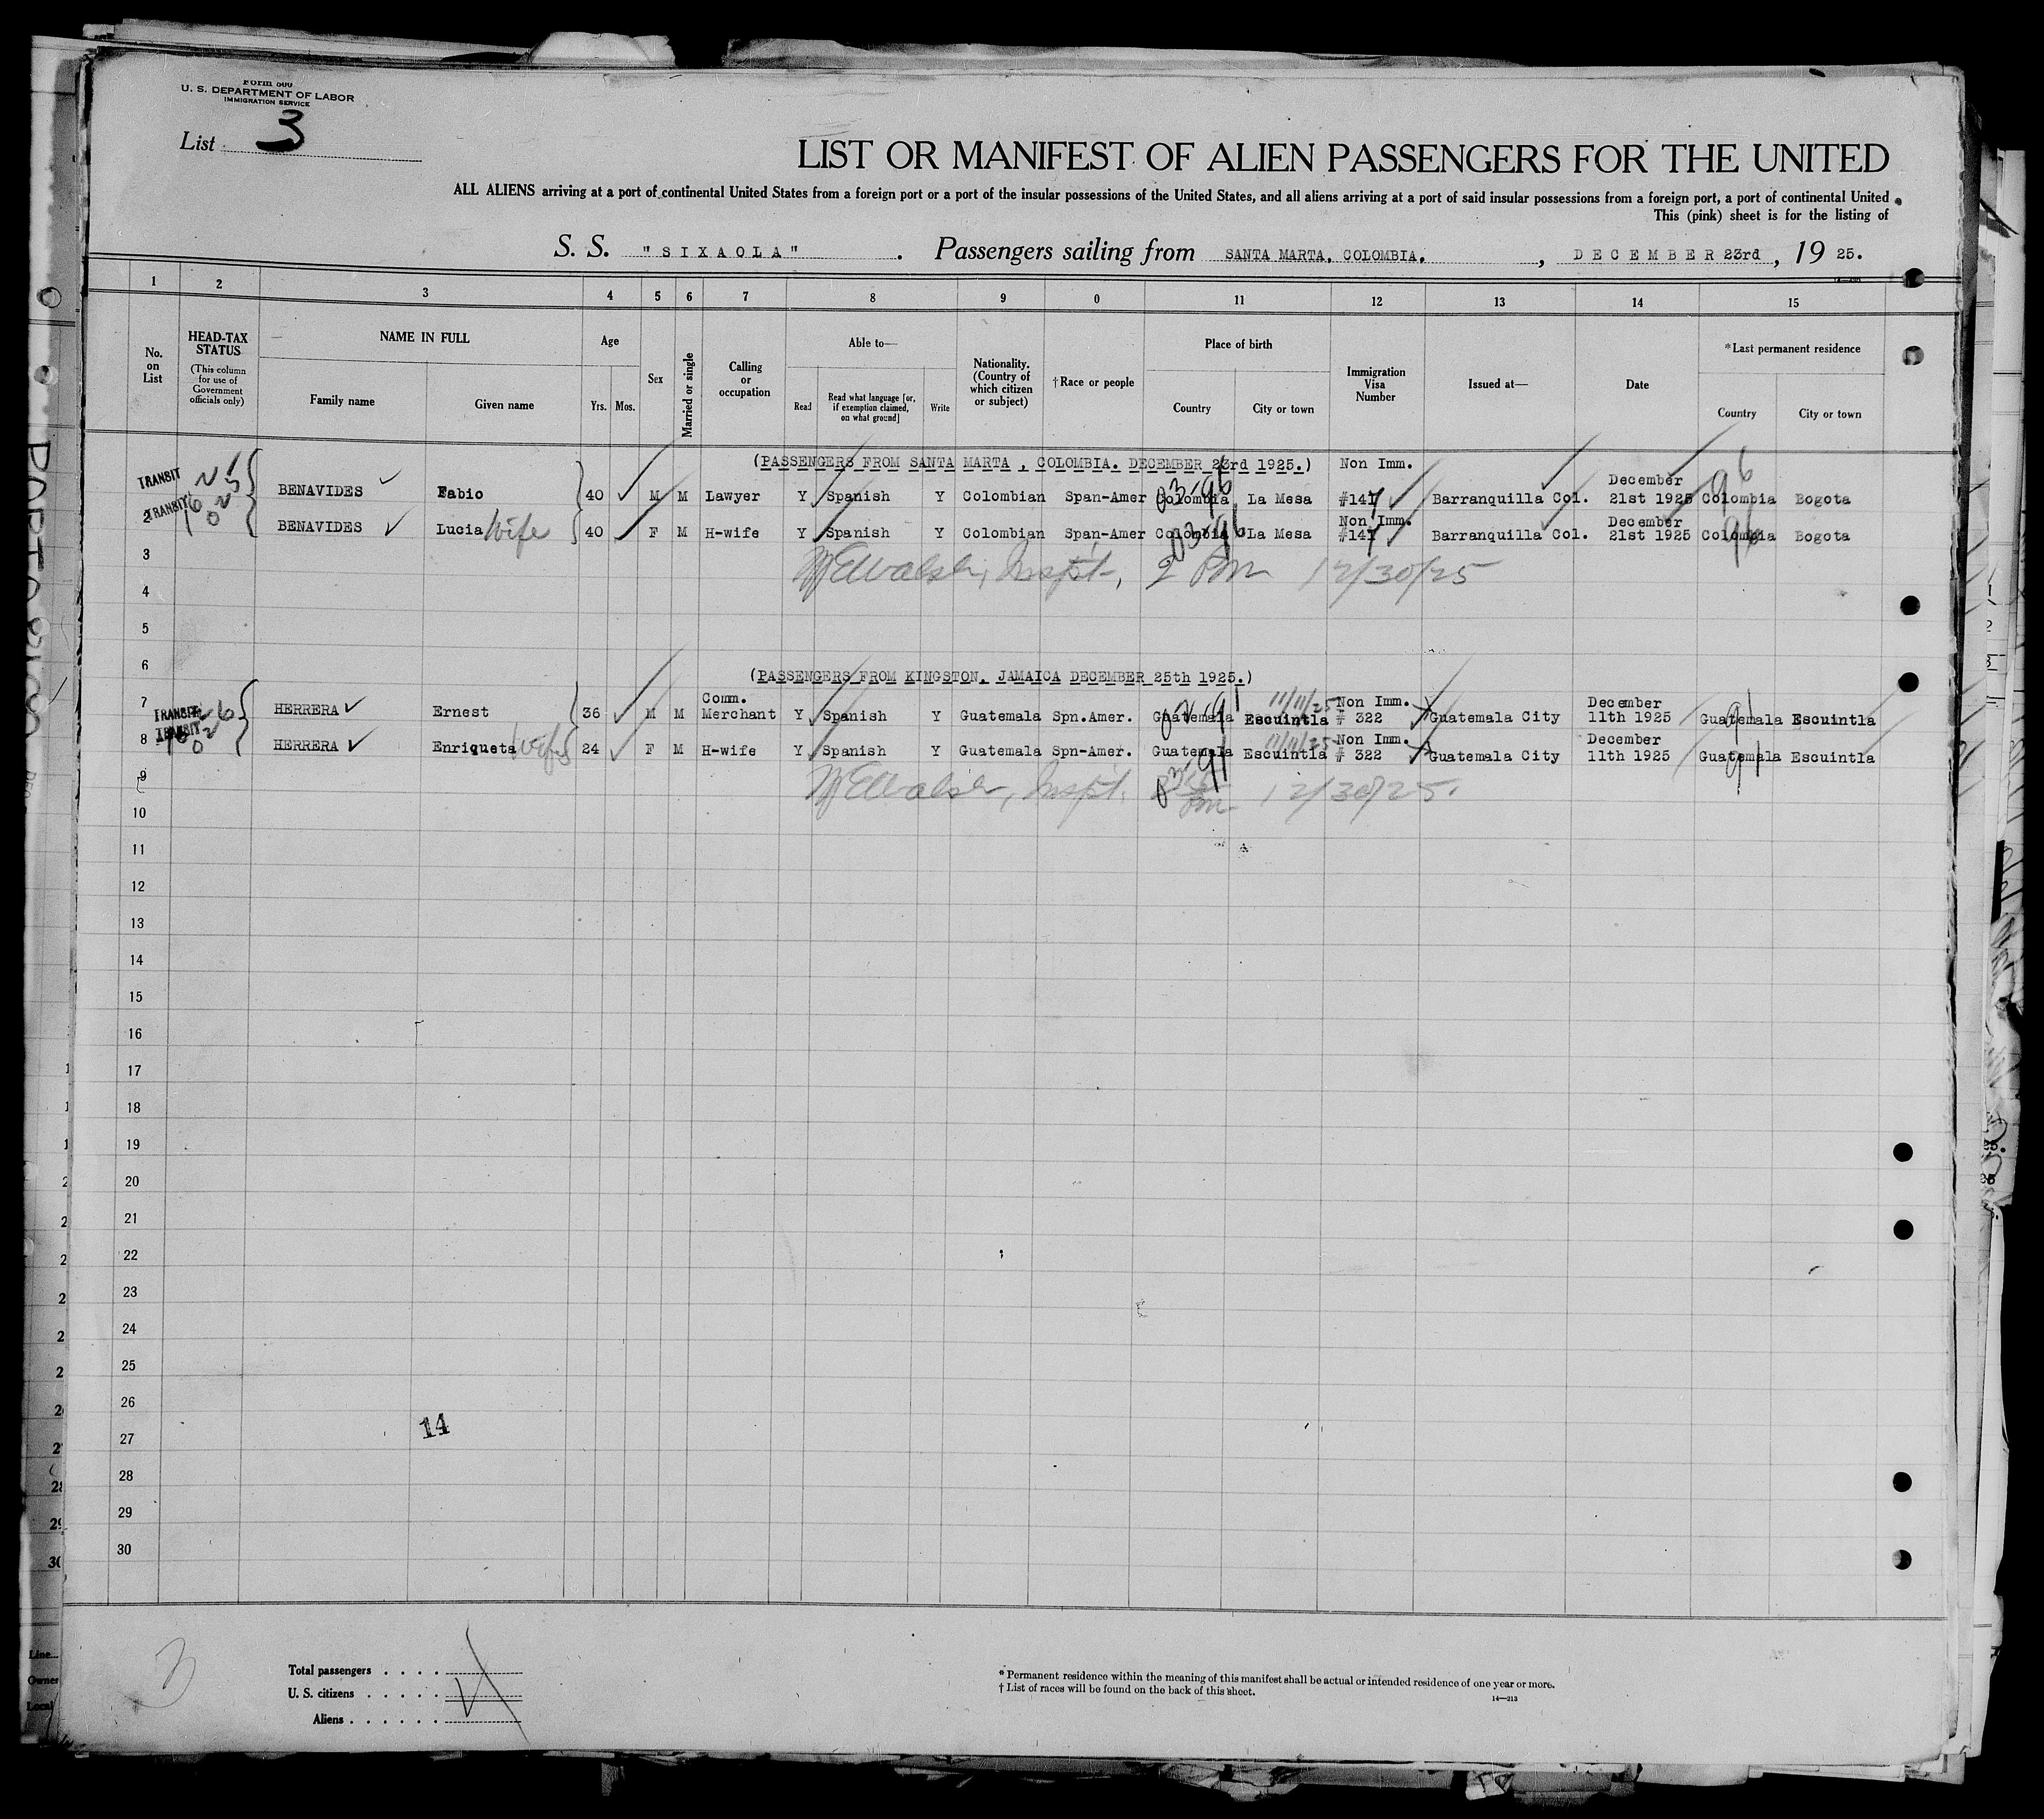 Form 500
U. S. DEPARTMENT OF LABOR
IMMIGRATION SERVICE
List 3
LIST OR MANIFEST OF ALIEN PASSENGERS FOR THE UNITED
ALL ALIENS arriving at a port of continental United States from a foreign port or a port of the insular possessions of the United States, and all aliens arriving at a port of said insular possessions from a foreign port, a port of continental United
This (pink) sheet is for the listing of
S. S. "SIXAOLA". Passengers sailing from SANTA MARTA, COLOMBIA, DECEMBER 23rd, 1925.
1 2 3 4 5 6 7 8 9 0 11 12 13 14 15
No. on List
HEAD-TAX STATUS
(This column for use of Government officials only)
NAME IN FULL
Family name Given name
Age
Yrs. Mos.
Sex
Married or single
Calling or occupation
Able to—
Read Read what language [or, if exemption claimed, on what ground] Write
Nationality. (Country of which citizen or subject)
†Race or people
Place of birth
Country City or town
Immigration Visa Number
Issued at—
Date
*Last permanent residence
Country City or town
(PASSENGERS FROM SANTA MARTA , COLOMBIA. DECEMBER 23rd 1925.) Non Imm.
TRANSIT BENAVIDES Fabio 40 M M Lawyer Y Spanish Y Colombian Span-Amer Colombia La Mesa #147 Barranquilla Col. December 21st 1925 Colombia Bogota
03-96 96
2 TRANSIT BENAVIDES Lucia Wife 40 F M H-wife Y Spanish Y Colombian Span-Amer Colombia La Mesa Non Imm. #147 Barranquilla Col. December 21st 1925 Colombia Bogota
03-96 96
3 W E Walsh, Inspt., 2 Pm 12/30/25
4
5
6
(PASSENGERS FROM KINGSTON. JAMAICA DECEMBER 25th 1925.)
7 TRANSIT HERRERA Ernest 36 M M Comm. Merchant Y Spanish Y Guatemala Spn.Amer. Guatemala Escuintla 11/11/25 Non Imm. # 322 Guatemala City December 11th 1925 Guatemala Escuintla
91
8 TRANSIT HERRERA Enriqueta Wife 24 F M H-wife Y Spanish Y Guatemala Spn-Amer. Guatemala Escuintla 11/11/25 Non Imm. # 322 Guatemala City December 11th 1925 Guatemala Escuintla
91
9 W E Walsh, Inspt. Pm 12/30/25.
10
11
12
13
14
15
16
17
18
19
20
21
22
23
24
25
26
14
27
28
29
30
3
Total passengers . . . .
U. S. citizens . . . . .
Aliens . . . . . .
* Permanent residence within the meaning of this manifest shall be actual or intended residence of one year or more.
† List of races will be found on the back of this sheet.
14—213